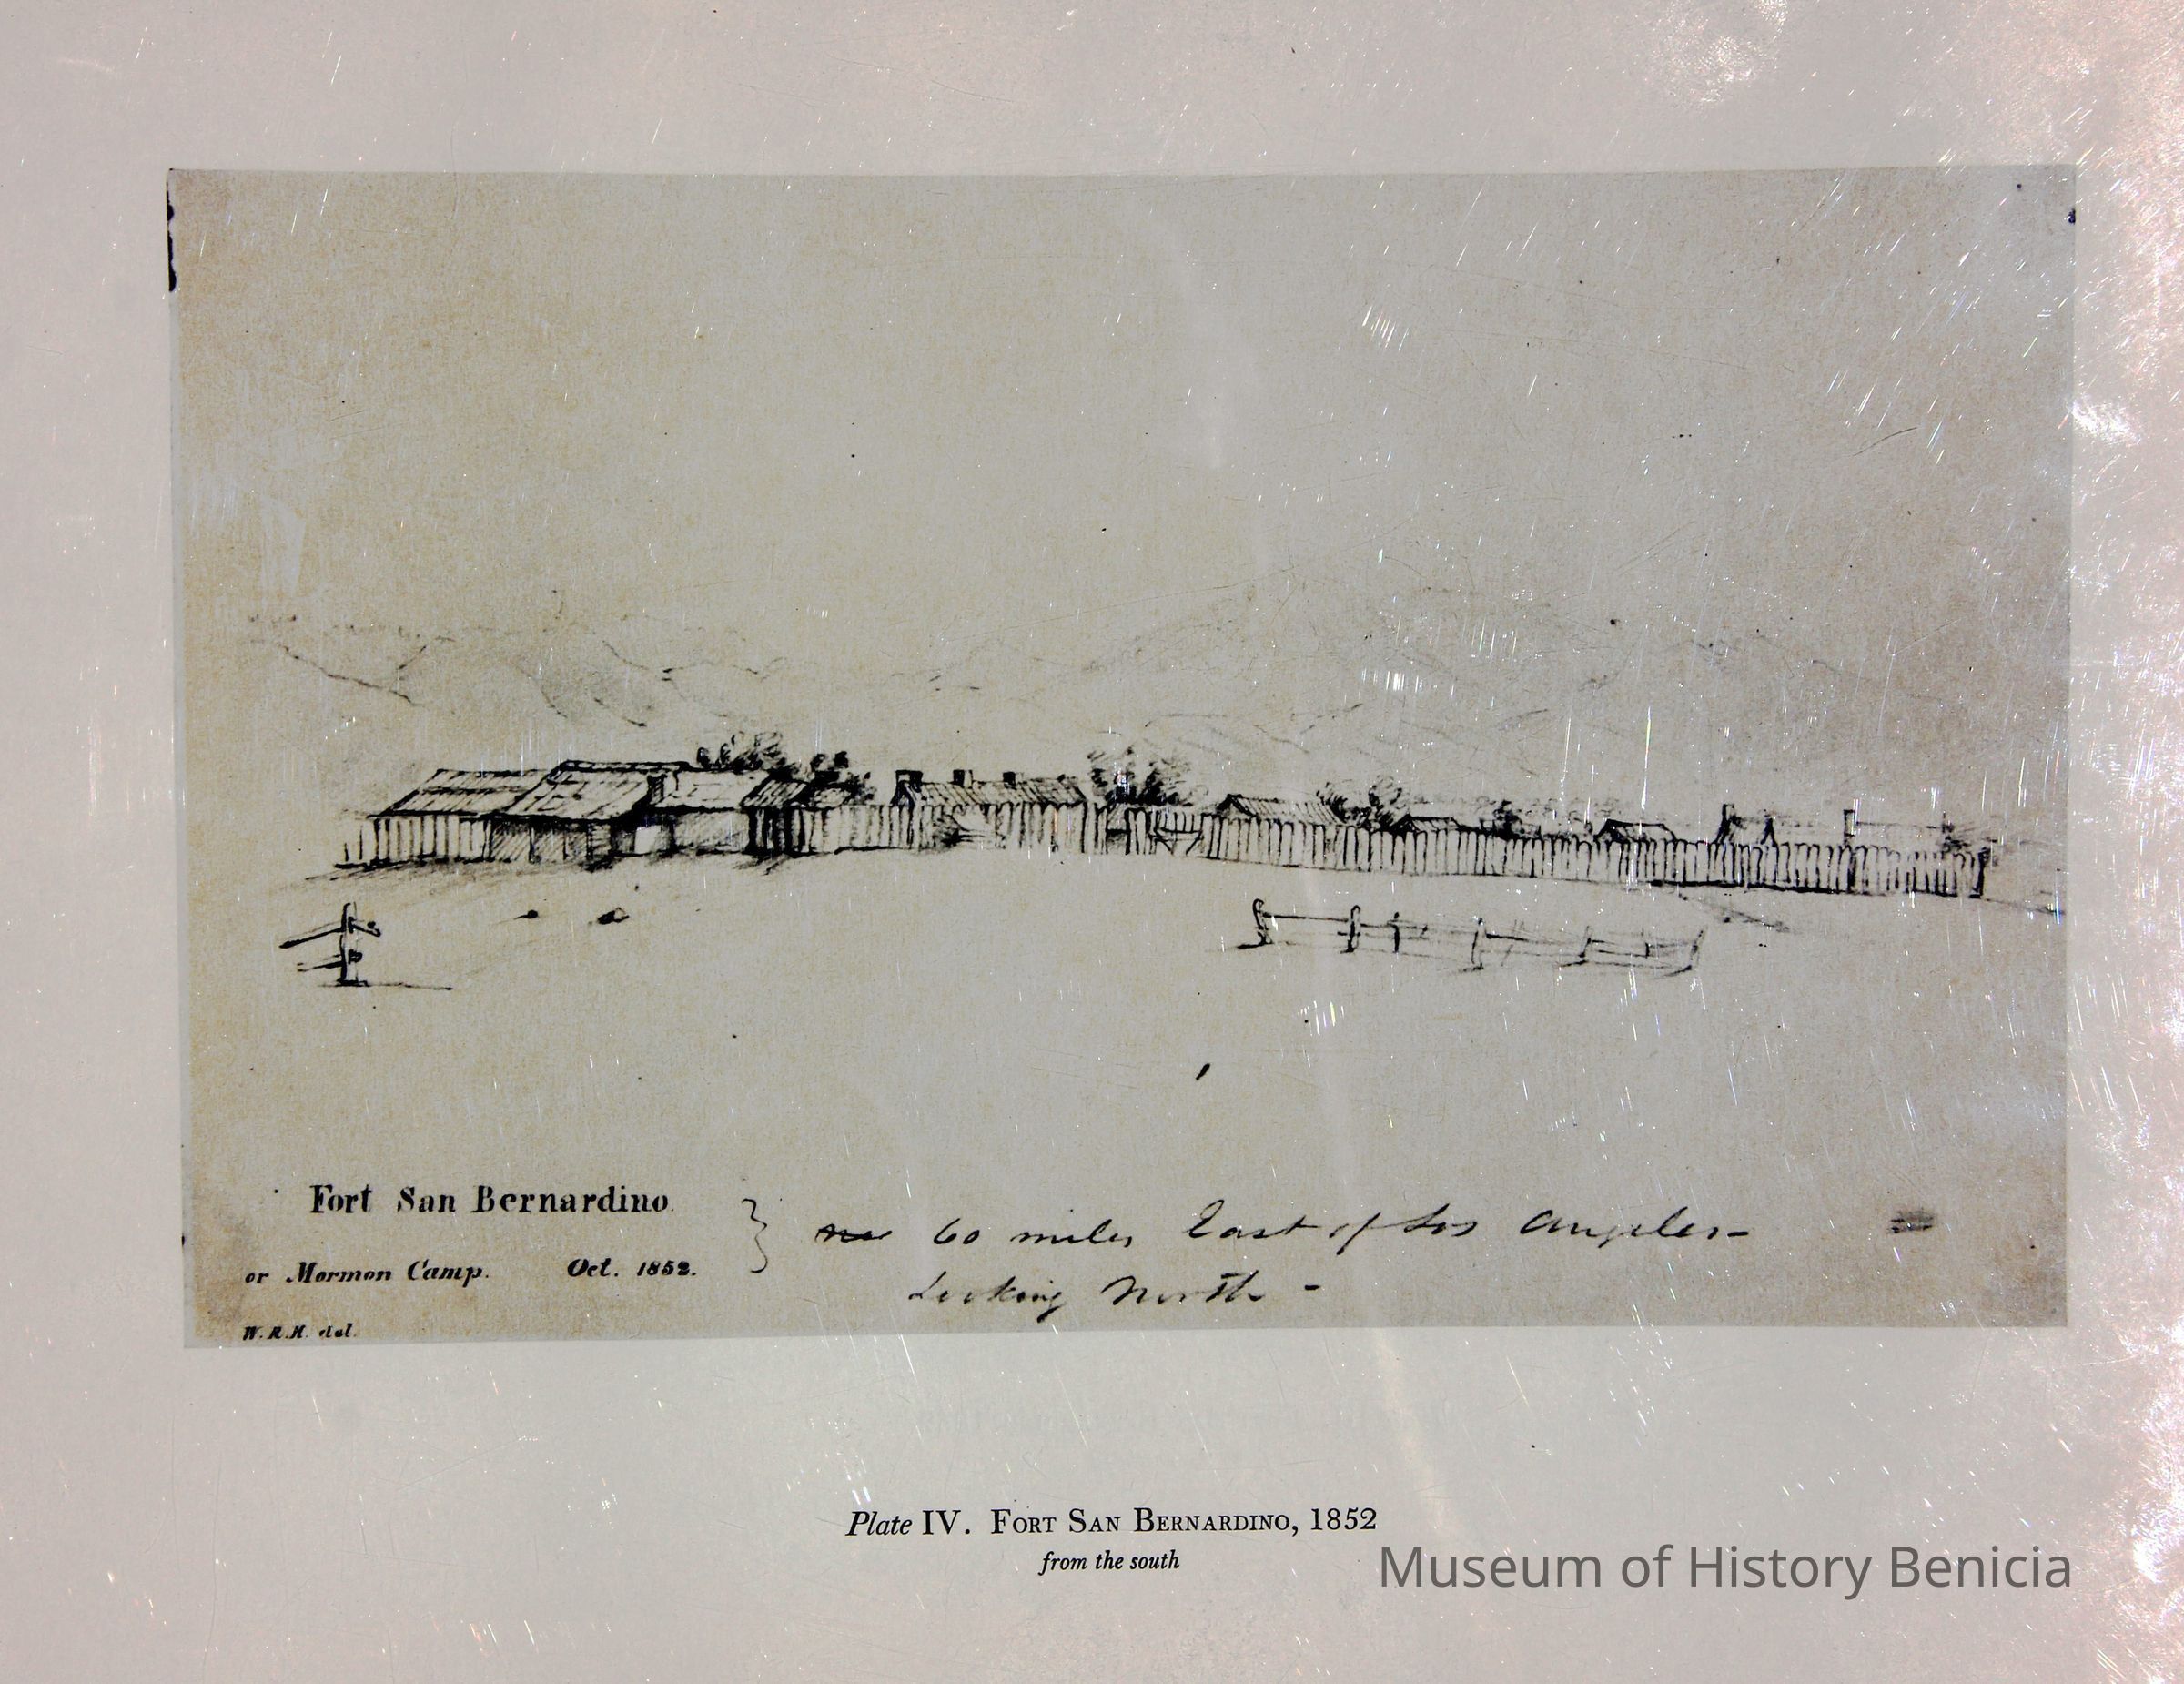 Fort San Bernardino.
or Mormon Camp. Oct. 1852.
W.R.H. del.
60 miles East of Los Angeles -
Looking North -
Plate IV. Fort San Bernardino, 1852
from the south
Museum of History Benicia